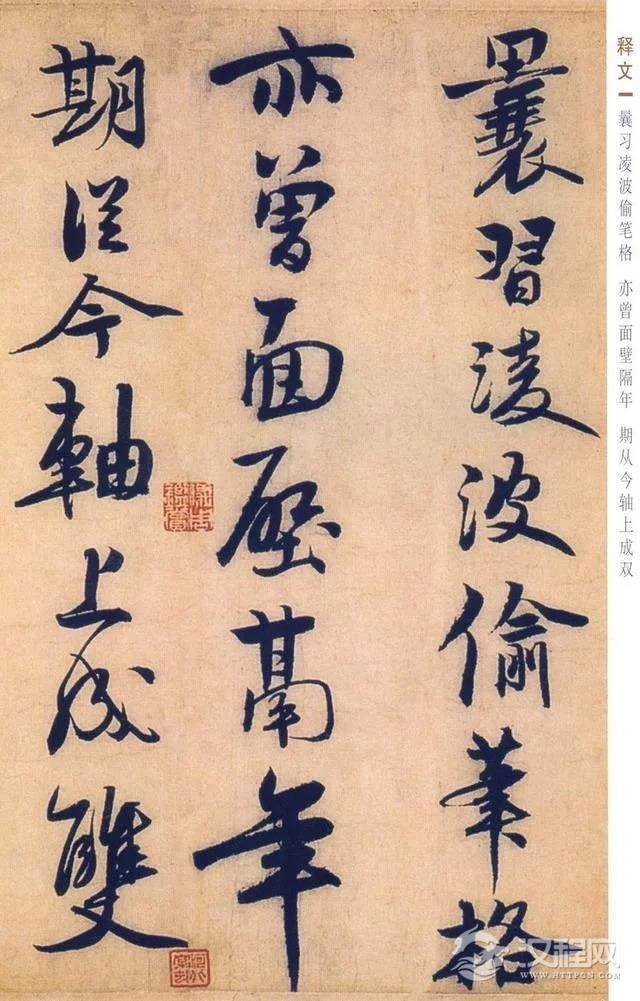 曩習淩波偷筆格
亦曾面壁年
期從今軸上成雙
释文 曩习凌波偷笔格 亦曾面壁隔年 期从今轴上成双
汉程网
WWW.HTTPCN.COM